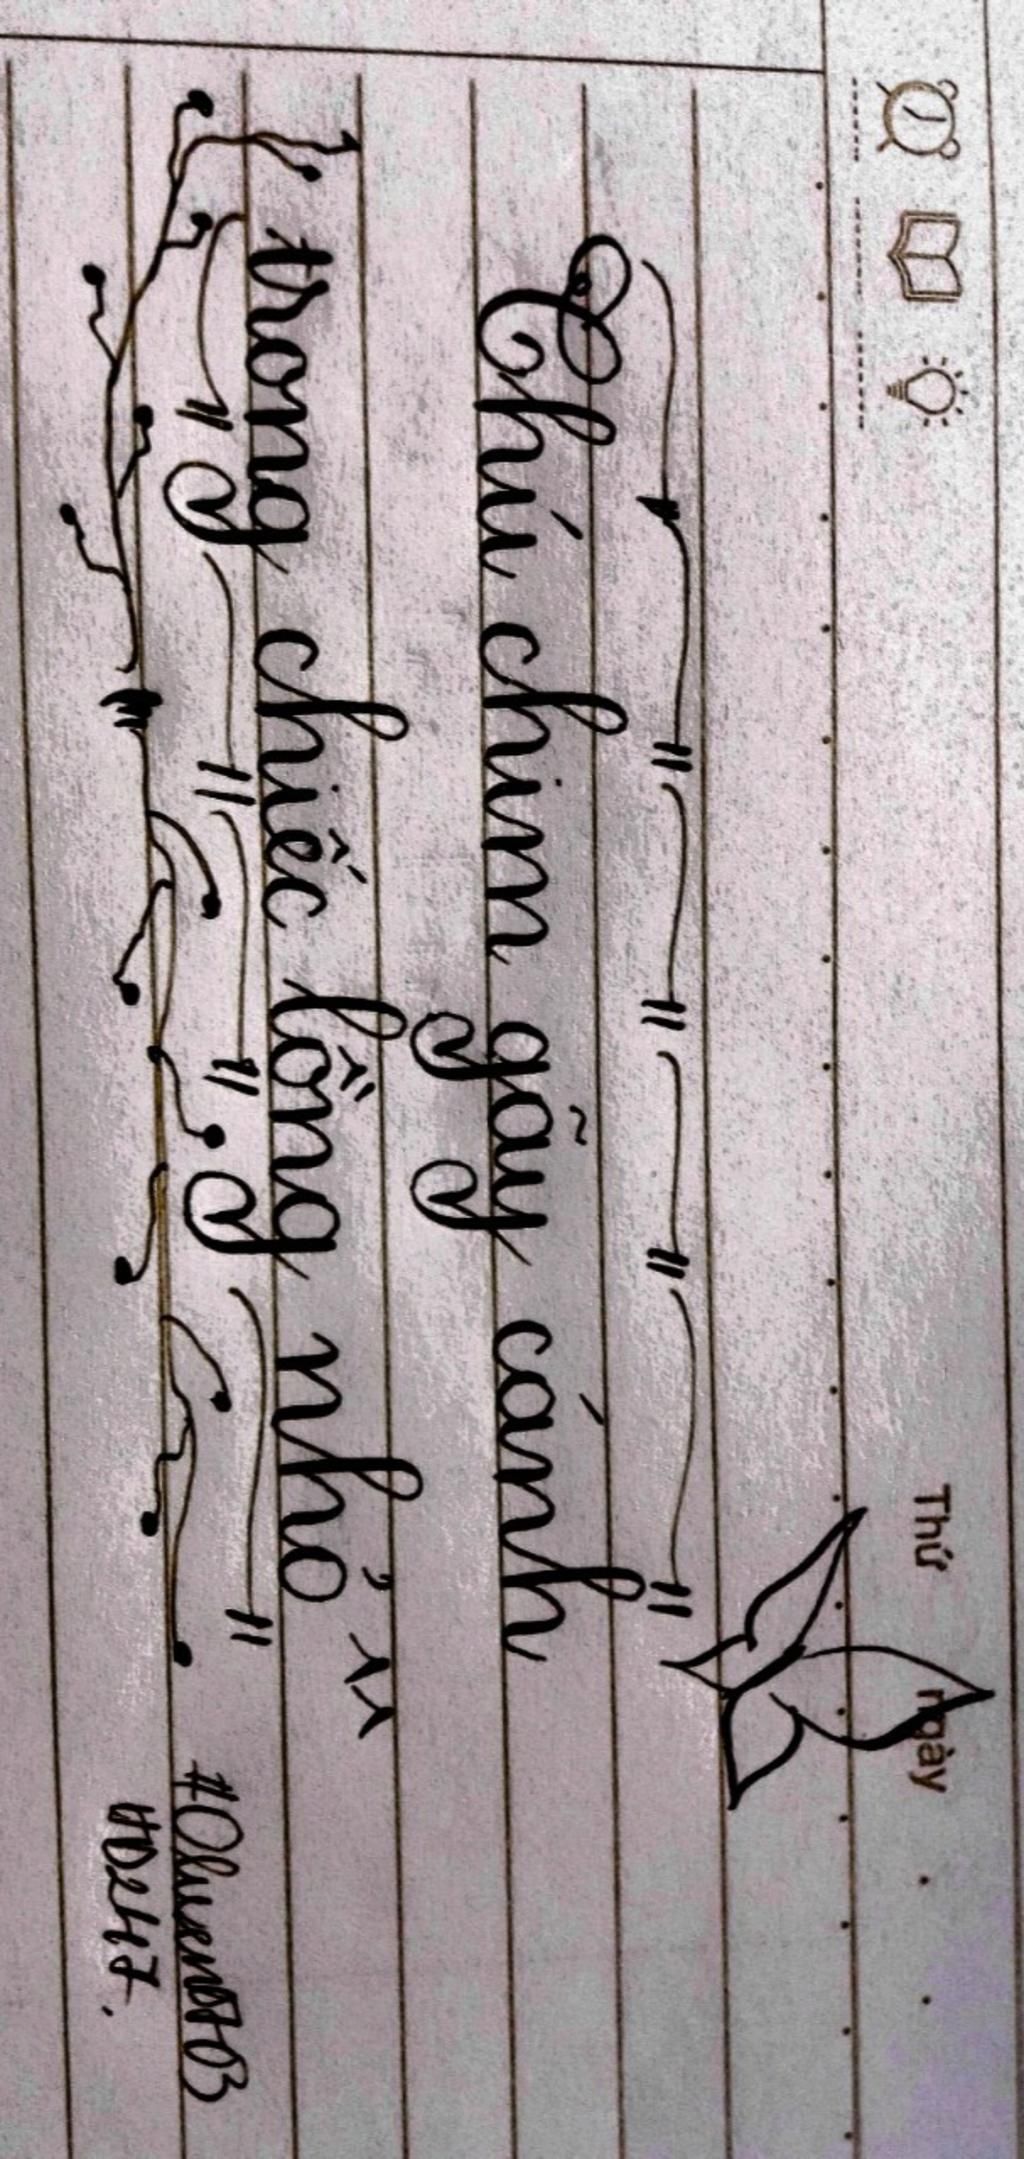 Thứ ngày
Chú chim gãy cánh
trong chiếc lồng nhỏ